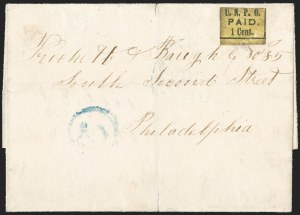 U.S.P.O.
PAID.
1 Cent.
& Baugh No 85
South Second Street
Philadelphia